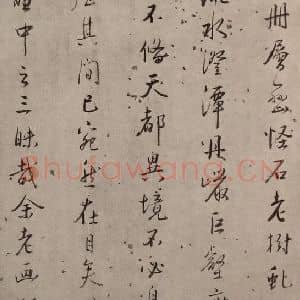 冊層巒怪石老樹虬
流水澄潭丹巖巨壑
不脩天都異境不必身
其間已宛然在目矣
中之三昧哉余老画
Shufawang.CN